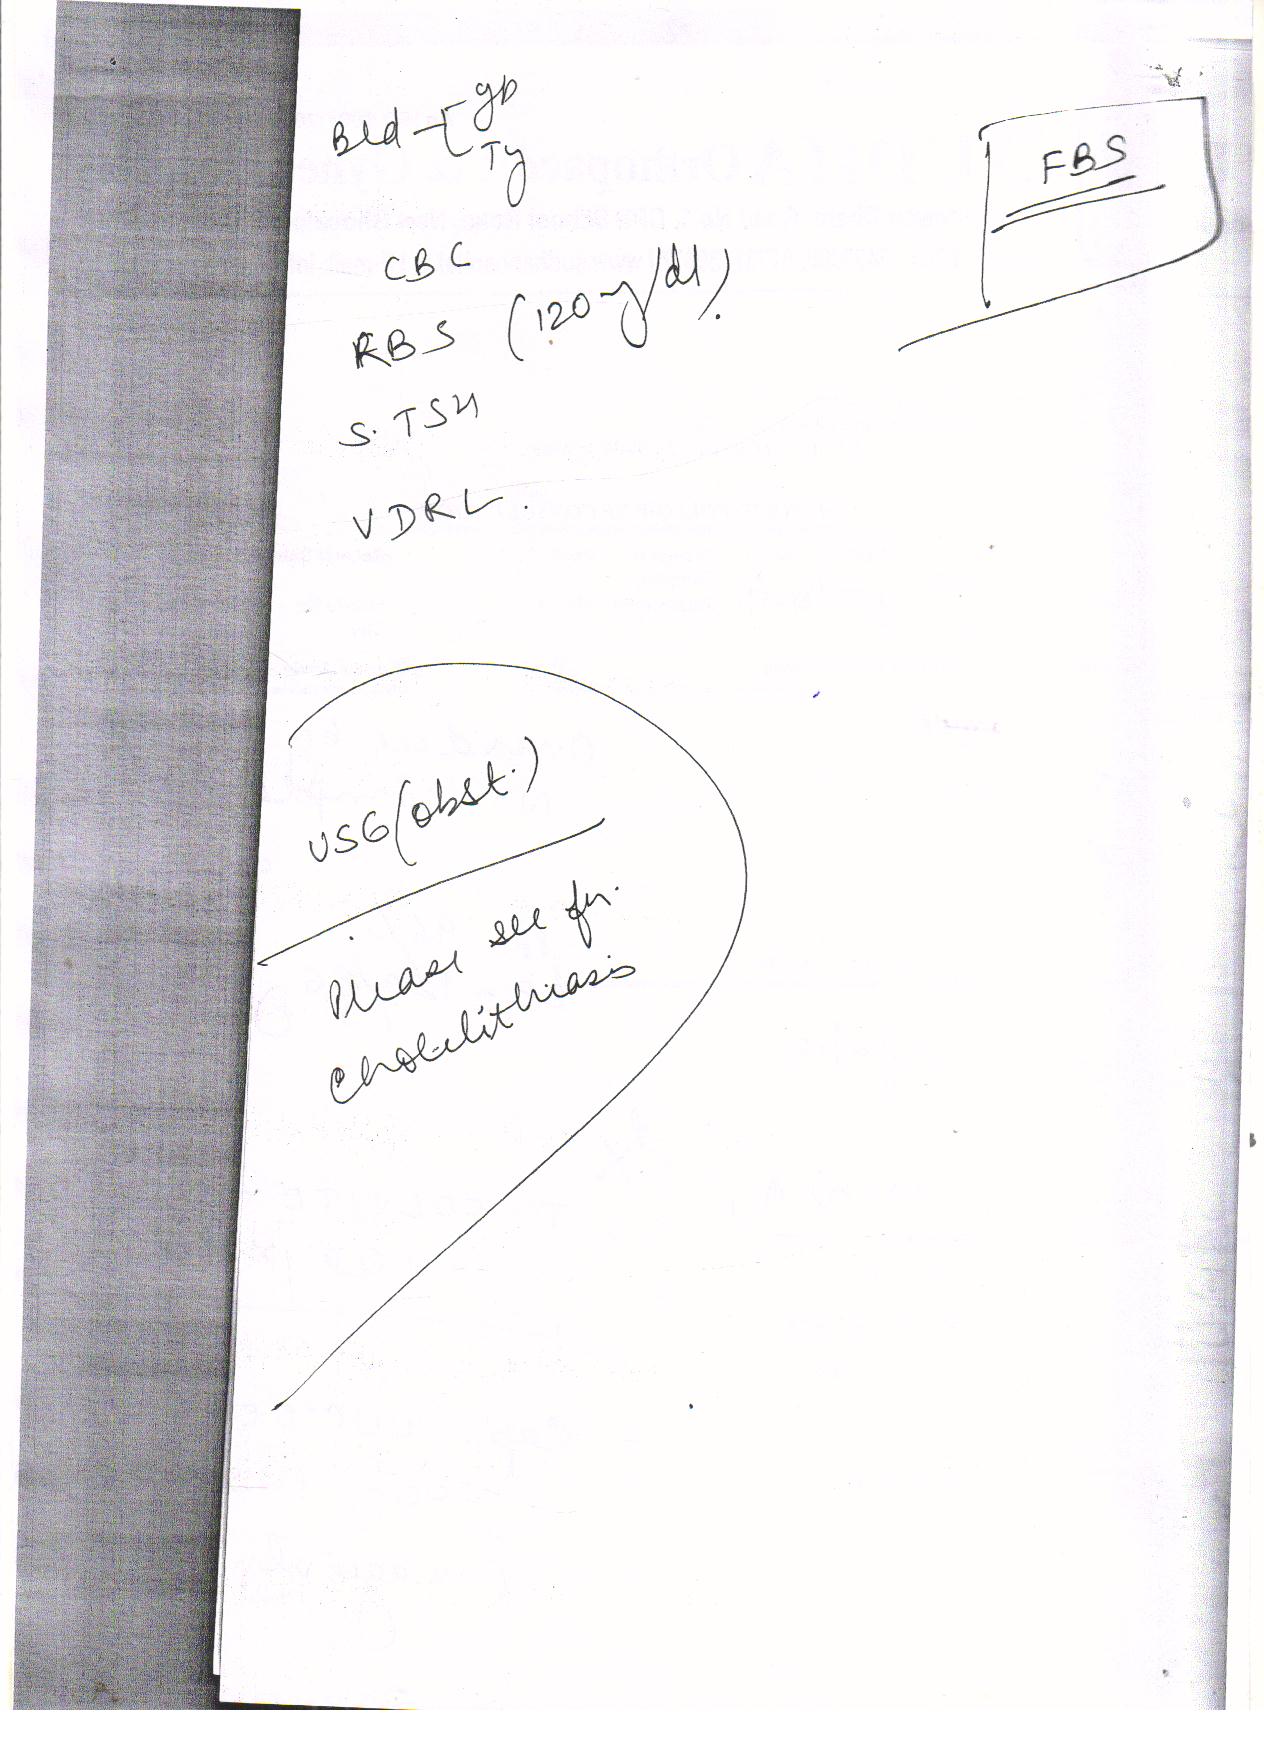 Bld - [ gp
Ty
FBS
CBC
RBS (120 mg/dl).
S. TSH
VDRL.
USG (obst.)
Please see for
cholelithiasis